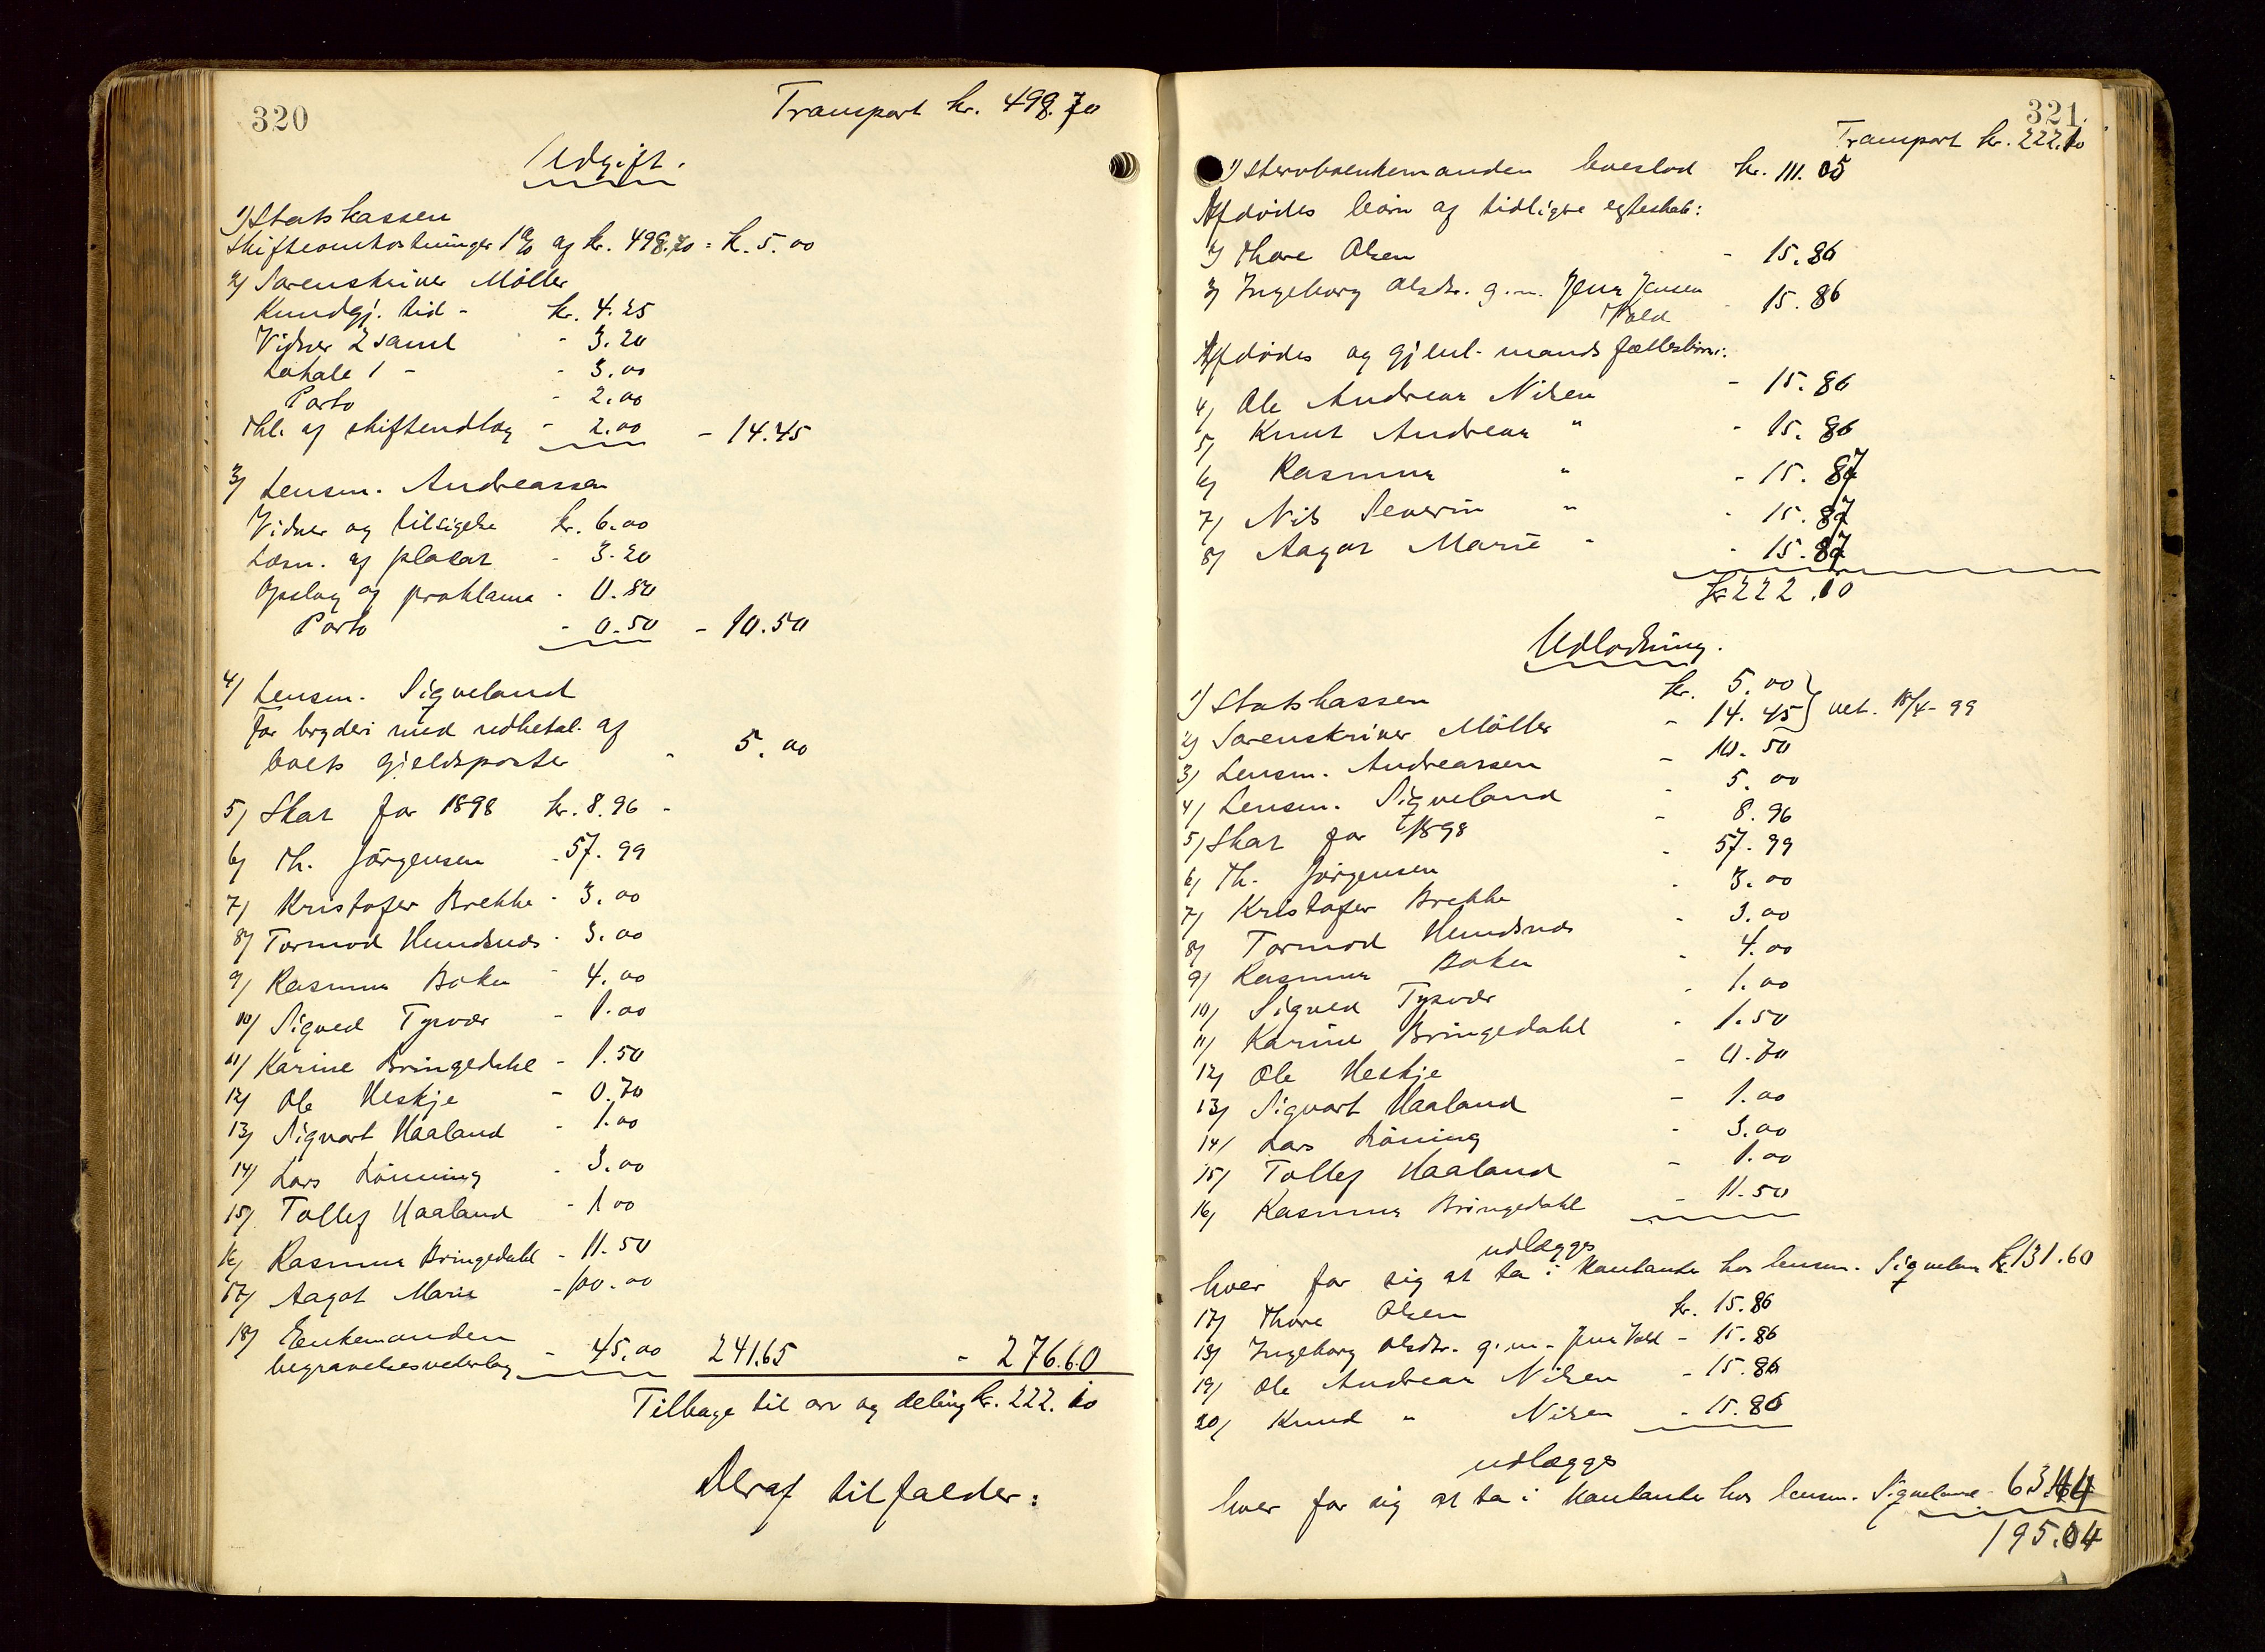 320
Transport kr. 498.70
Udgift.
1) Statskassen
Skifteomkostninger 1% af kr. 498.70 = kr. 5.00
2) Sorenskriver Møller
Kundgj. tid - kr. 4.25
Vidner 2 saml - 3.20
Lokale 1 - - 3.00
Porto - 2.00
Thl. af skifteudlæg - 2.00 - 14.45
3) Lensm. Andreassen
Vidner og tilsigelse kr. 6.00
Læsn. af placat - 3.20
Opslag af proklama - 0.80
Porto - 0.50 - 10.50
4) Lensm. Sigveland
for bryderi med udbetal. af
boets gjeldsposter - 5.00
5) Skat for 1898 kr. 8.96 -
6) Th. Jørgensen - 57.99
7) Kristofer Brekke - 3.00
8) Tormod Hundsnes - 3.00
9) Rasmus Boken - 4.00
10) Sigved Tysvær - 1.00
11) Karine Bringedahl - 1.50
12) Ole Heskje - 0.70
13) Sigvart Haaland - 1.00
14) Lars Lønning - 3.00
15) Tollef Haaland - 1.00
16) Rasmus Bringedahl - 11.50
17) Aagot Marie - 100.00
18) Enkemanden
begravelsesvederlag - 45.00 241.65 - 276.60
Tilbage til arv og deling kr. 222.10
Deraf tilfalder:
321.
Transport kr. 222.10
1) Stervboenkemanden boeslod kr. 111.05
Afdødes børn af tidligere egteskab:
2) Thore Olsen - 15.86
3) Ingeborg Olsdtr. g.m. Jens Jensen
Vold - 15.86
Afdødes og gjenl. mands fællesbørn:
4) Ole Andreas Nilsen - 15.86
5) Knut Andreas " - 15.86
6) Rasmus " - 15.87
7) Nils Severin " - 15.87
8) Aagot Marie " - 15.87
kr 222.10
Udlodning.
1) Statskassen kr. 5.00
2) Sorenskriver Møller - 14.45 } bet. 18/4-99
3) Lensm. Andreassen - 10.50
4) Lensm. Sigveland - 5.00
5) Skat for 1898 - 8.96
6) Th. Jørgensen - 57.99
7) Kristofer Brekke - 3.00
8) Tormod Hundsnes - 3.00
9) Rasmus Boken - 4.00
10) Sigved Tysvær - 1.00
11) Karine Bringedahl - 1.50
12) Ole Heskje - 0.70
13) Sigvart Haaland - 1.00
14) Lars Løning - 3.00
15) Tollef Haaland - 1.00
16) Rasmus Bringedahl - 11.50
udlægges
hver for sig at ta i kontante hos lensm. Sigveland kr. 131.60
17) Thore Olsen kr. 15.86
18) Ingeborg Olsdtr. g.m. Jens Vold - 15.86
19) Ole Andreas Nilsen - 15.86
20) Knud " Nilsen - 15.86
udlægges
hver for sig at ta i kontante hos lensm. Sigveland - 63.44
195.04